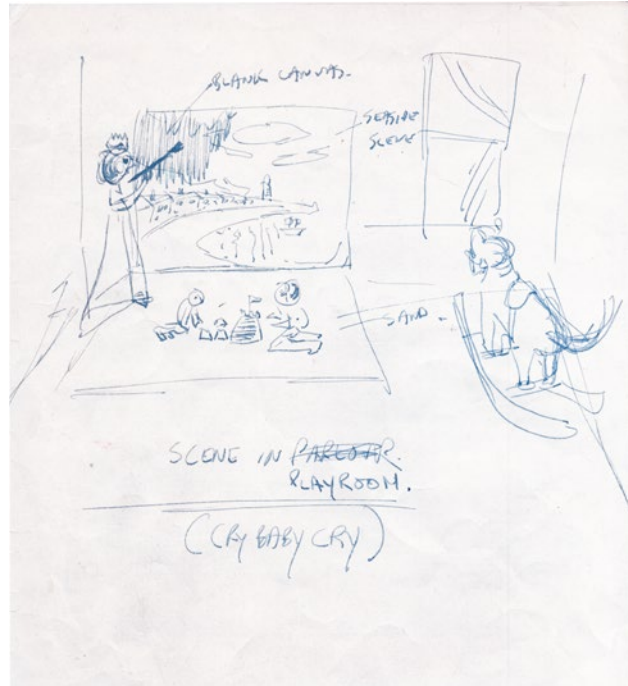 BLANK CANVAS.
SEASIDE
SCENE
SAND.
SCENE IN PARLOUR.
PLAYROOM.
(CRY BABY CRY)